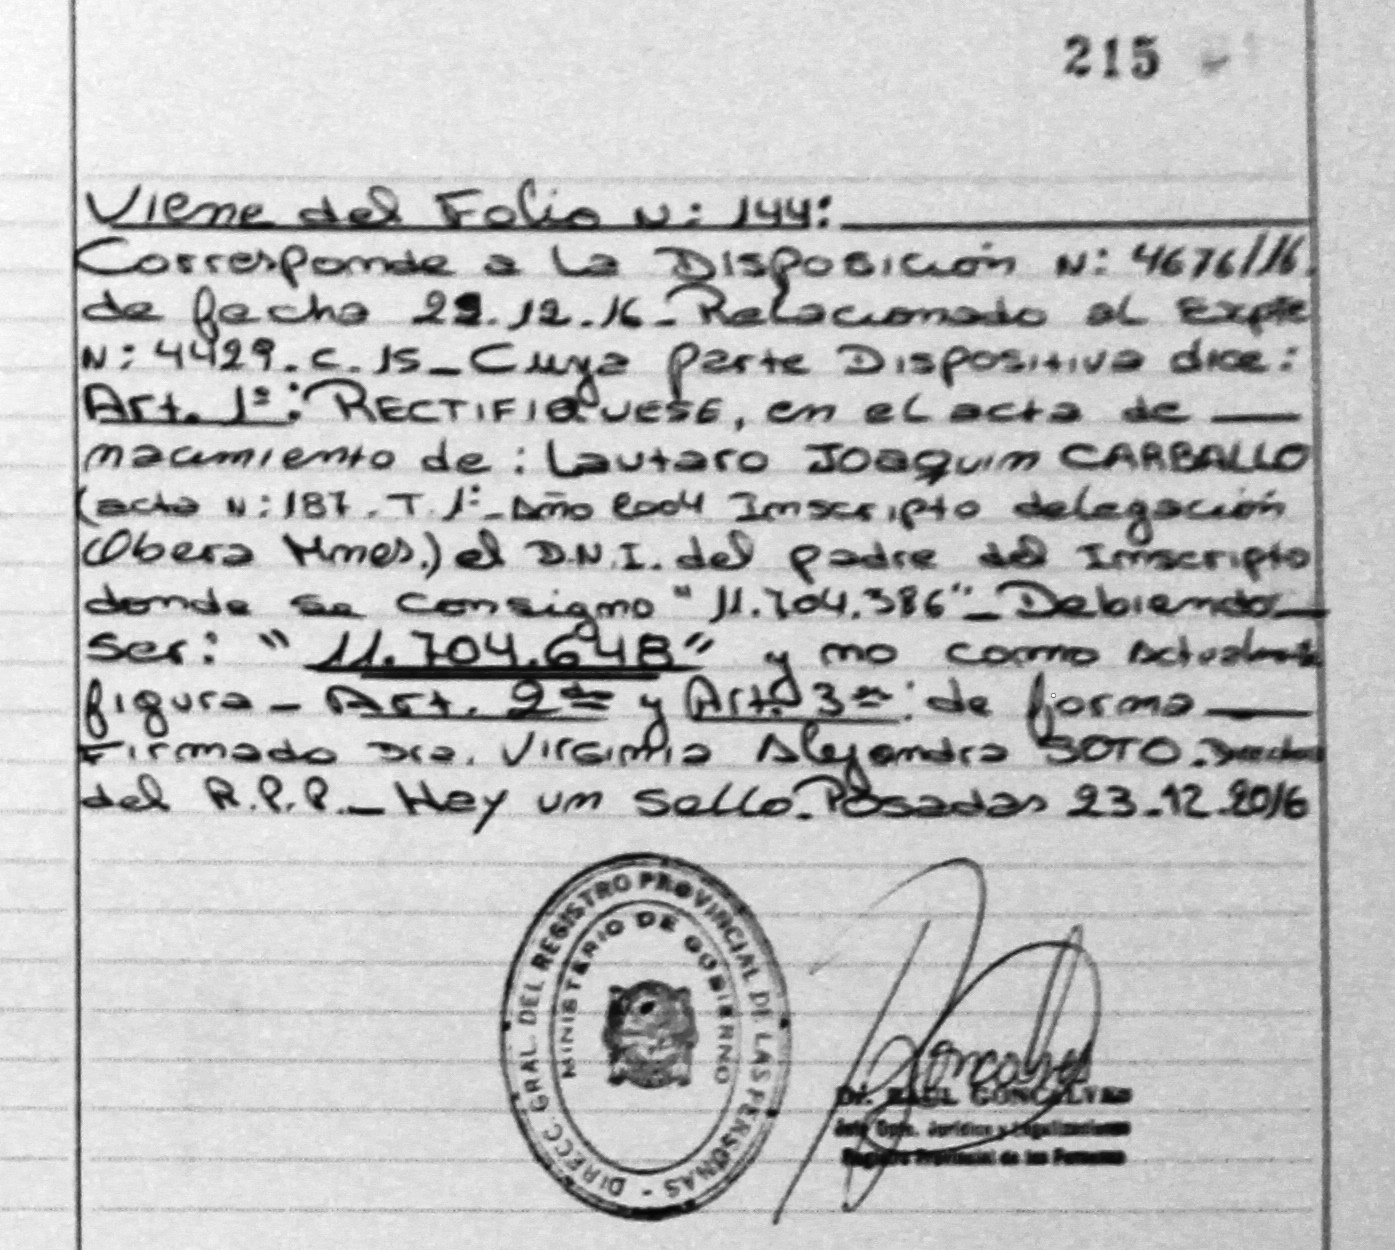 215
Viene del Folio N: 144:
Corresponde a la Disposición N: 4676/16.
de fecha 22.12.16 - Relacionado al Expte
N: 4429.C.15 - Cuya parte Dispositiva dice:
Art. 1º: RECTIFIQUESE, en el acta de
nacimiento de: Lautaro JOAQUIN CARBALLO
(acta N: 187. T. 1º - Año 2004 Inscripto delegación
Obera Mnes.) el D.N.I. del padre del Inscripto
donde se consigno "11.704.386" - Debiendo
ser: "11.704.648" y no como actualmente
figura - Art. 2do y Art. 3ro: de forma
Firmado Dra. Virginia Alejandra SOTO. Directora
del R.P.P. - Hay un sello. Posadas 23.12.2016
DIRECC. GRAL. DEL REGISTRO PROVINCIAL DE LAS PERSONAS -
MINISTERIO DE GOBIERNO
Goncalves
Dr. RAUL GONCALVES
Jefe Dpto. Jurídico y Legalizaciones
Registro Provincial de las Personas